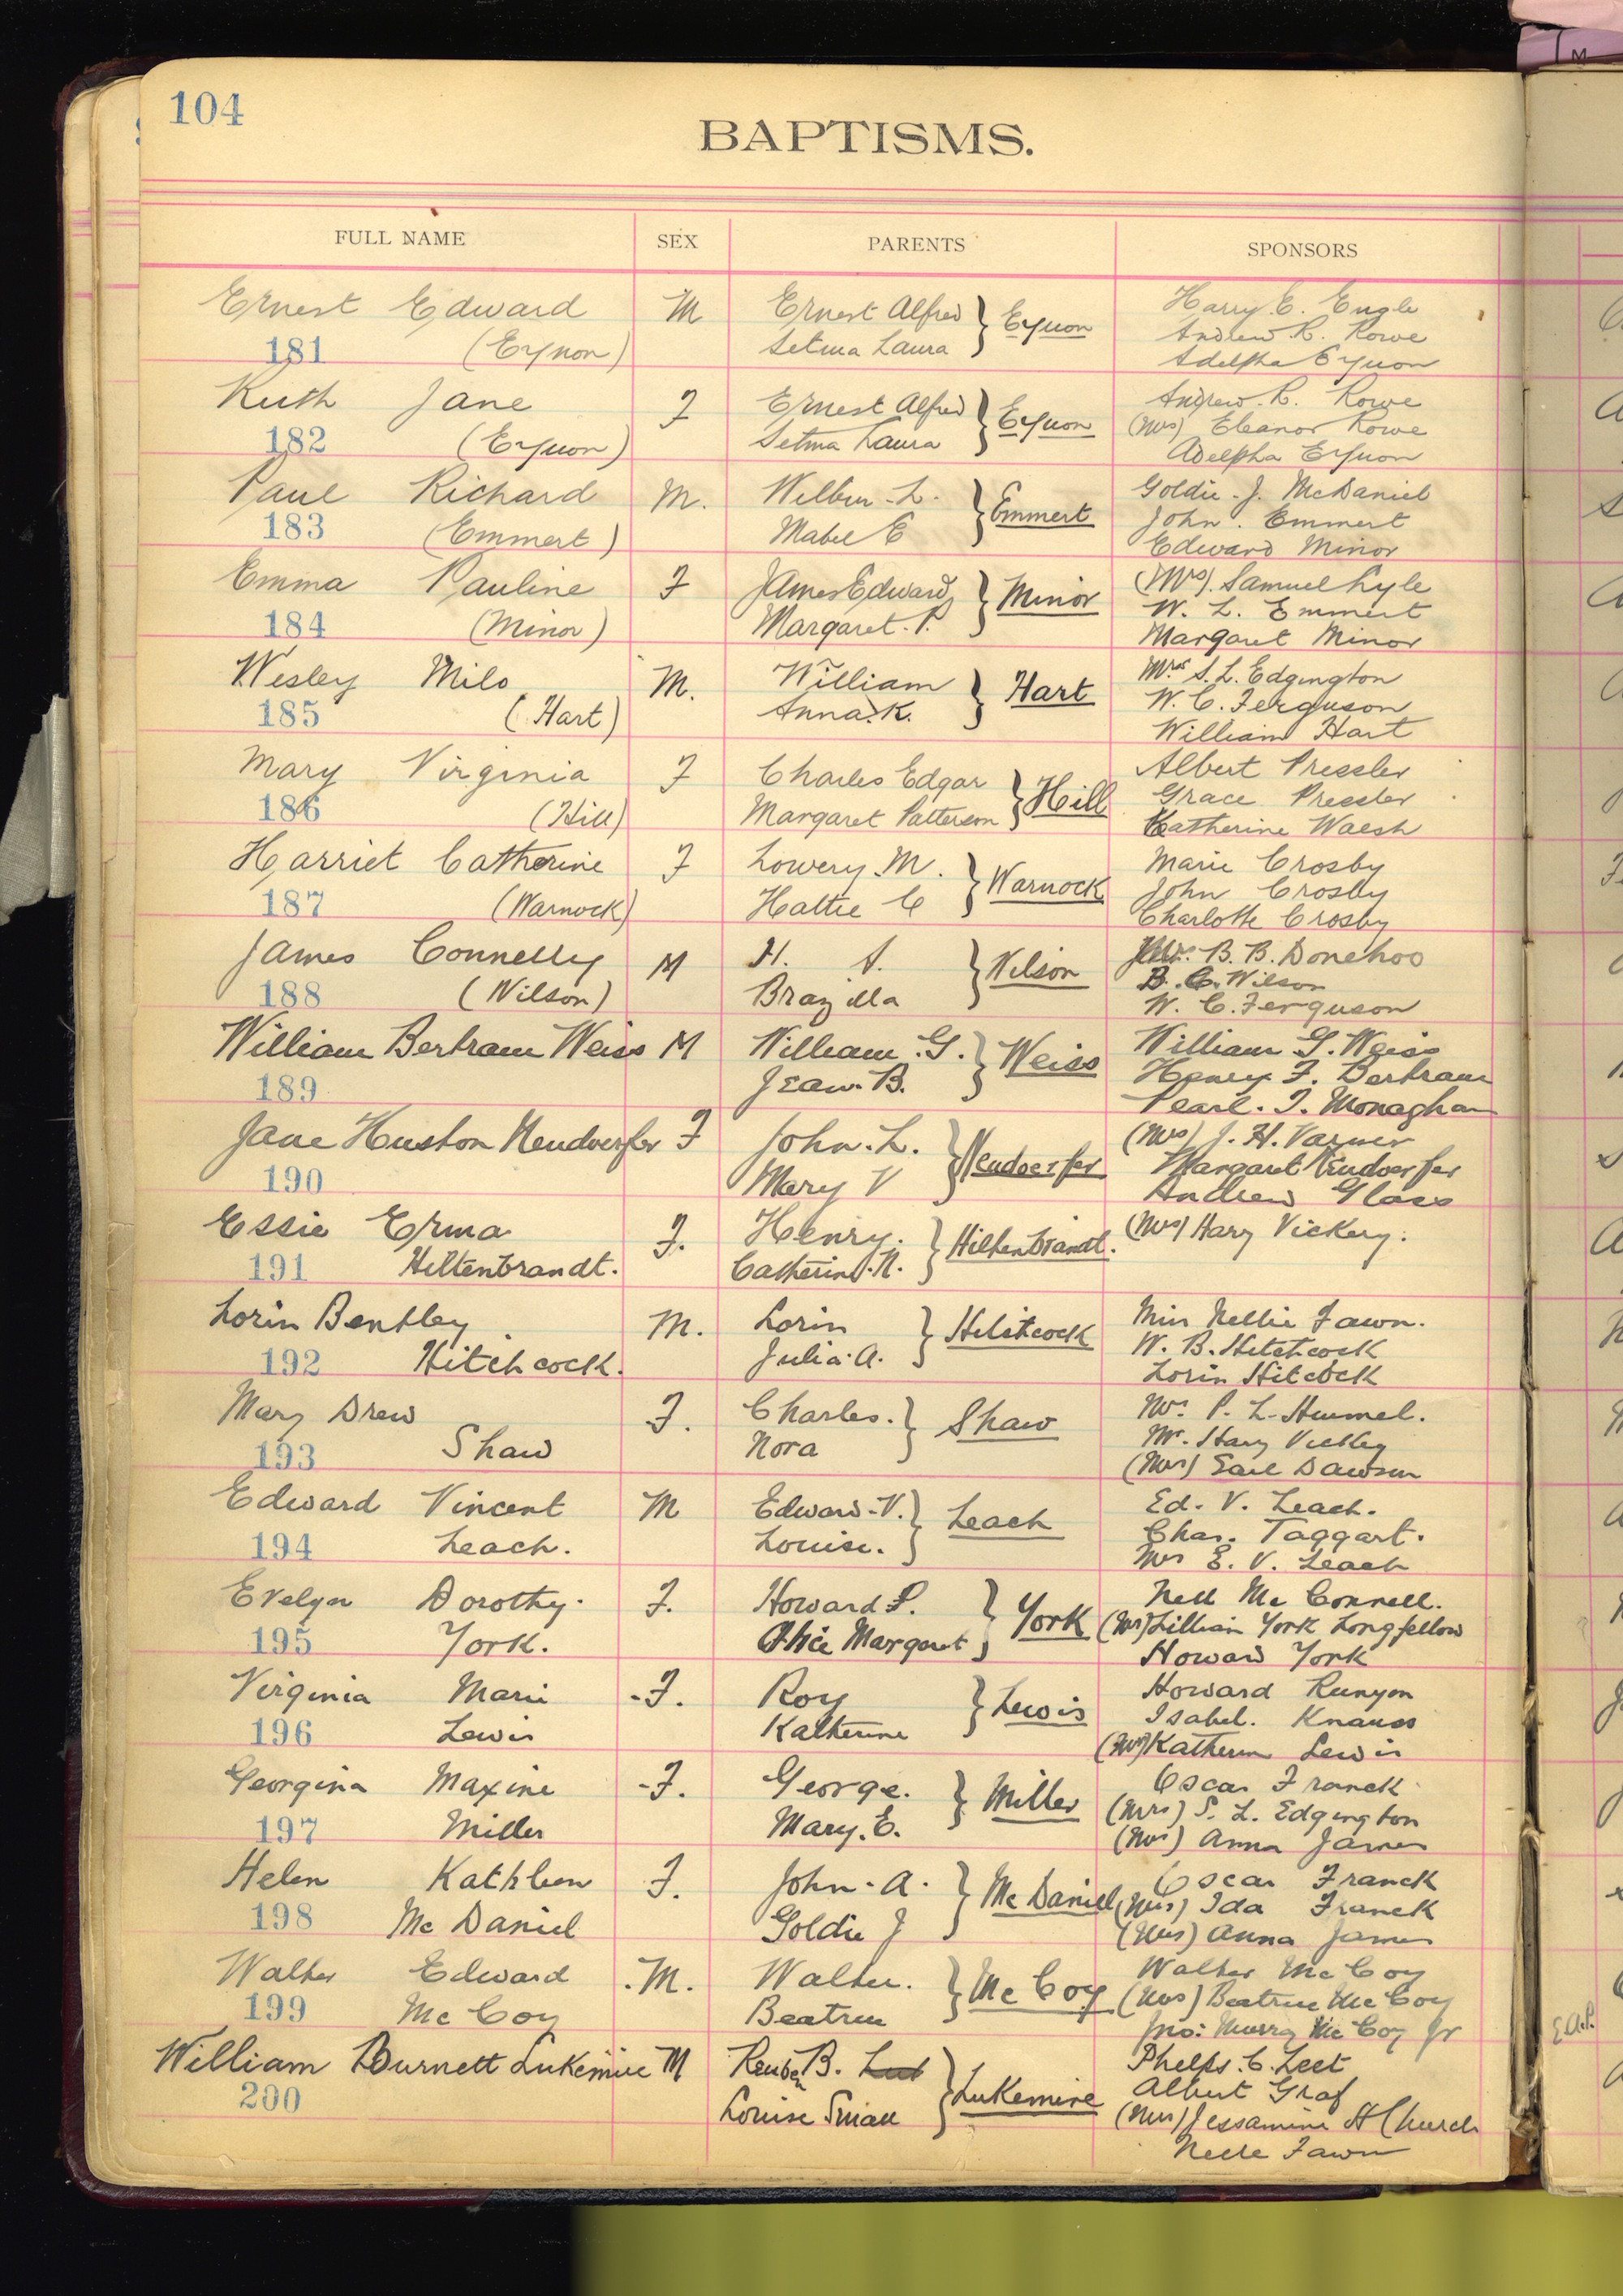 104
BAPTISMS.
FULL NAME SEX PARENTS SPONSORS
Ernest Edward M Ernest Alfred } Eynon Harry C. Engle
181 (Eynon) Selma Laura Andrew R. Rowe
Adelpha Eynon
Ruth Jane F Ernest Alfred } Eynon Andrew. R. Rowe
182 (Eynon) Selma Laura (Mrs) Eleanor Rowe
Adelpha Eynon
Paul Richard M. Wilbur L. } Emmert Goldie. J. McDaniel
183 (Emmert) Mabel E John. Emmert
Edward Minor
Emma Pauline F James Edward } Minor (Mrs). Samuel Lyle
184 (Minor) Margaret. P. W. L. Emmert
Margaret Minor
Wesley Milo M. William } Hart Mrs S. L. Edgington
185 (Hart) Anna. K. W. C. Ferguson
William Hart
Mary Virginia F Charles Edgar } Hill Albert Pressler
186 (Hill) Margaret Patterson Grace Pressler
Katherine Walsh
Harriet Catherine F Lowery. M. } Warnock Marie Crosby
187 (Warnock) Hattie C John Crosby
Charlotte Crosby
James Connelly M H. A. } Wilson B. B. Donehoo
188 (Wilson) Brazilla B. C. Wilson
W. C. Ferguson
William Bertram Weiss M William. G. } Weiss William G. Weiss
189 Jean. B. Henry F. Bertram
Pearl. I. Monaghan
Jane Huston Neudoerfer F John. L. } Neudoerfer (Mrs) J. H. Varner
190 Mary V Margaret Neudoerfer
Andrew Glass
Essie Erma F. Henry. } Hiltenbrandt. (Mrs) Hary Vickery.
191 Hiltenbrandt. Catherine. N.
Lorin Bentley M. Lorin } Hitchcock Miss Nellie Fawn.
192 Hitchcock. Julia. A. W. B. Hitchcock
Lorin Hitcock
Mary Drew F. Charles. } Shaw Mrs. P. L. Hummel.
193 Shaw Nora Mr. Hary
(Mrs) Earl Dawson
Edward Vincent M Edward. V. } Leach Ed. V. Leach.
194 Leach. Louise. Chas. Taggart.
Mrs E. V. Leach
Evelyn Dorothy. F. Howard P. } York Nell Mc Connell.
195 York. Alice Margaret (Mrs) Lillian York Longfellow
Howard York
Virginia Marie -F. Roy } Lewis Howard Runyon
196 Lewis Katherine Isabel. Knauss
(Mrs) Katherine Lewis
Georgina Maxine -F. George. } Miller Oscar Franck
197 Miller Mary. E. (Mrs) S. L. Edgington
(Mrs) Anna James
Helen Kathleen F. John. A. } Mc Daniel Oscar Franck
198 Mc Daniel Goldie J (Mrs) Ida Franck
(Mrs) Anna James
Walter Edward .M. Walter. } Mc Coy Walter Mc Coy
199 Mc Coy Beatrice (Mrs) Beatrice Mc Coy
Jno: Murry Mc Coy Jr
William Burnett Lukemire M Reuben B. } Lukemire Phelps. C. Leet
200 Louise Small Albert Graf
(Mrs) Jessamine H Church
Nelle Fawn